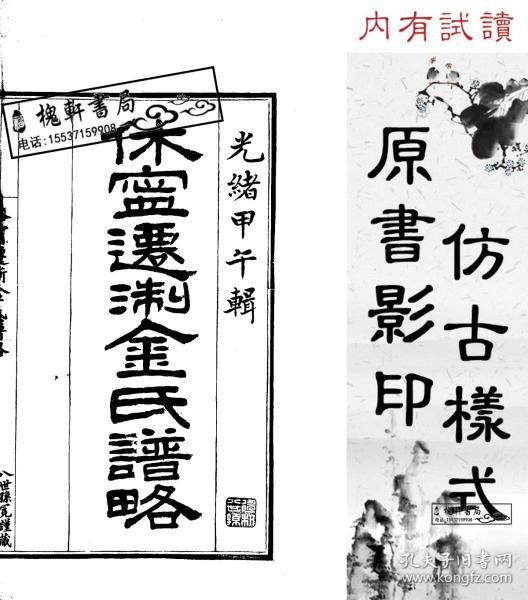 内有試讀
光緒甲午輯
保寧遷浙金氏譜略
八世孫寬謹藏
槐軒書局
电话:15537159908
仿古樣式
原書影印
槐軒書局
电话:15537159908
孔夫子旧书网
www.kongfz.com